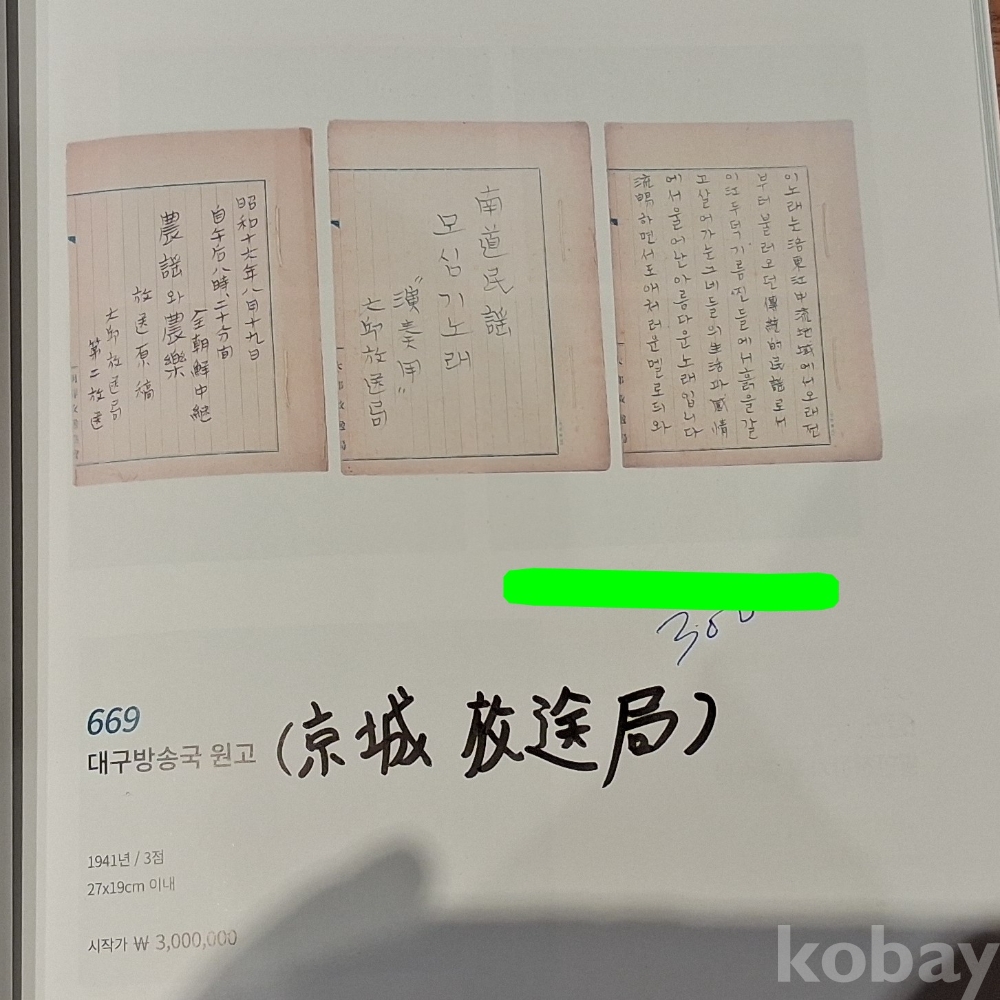 昭和十六年八月十九日
自午后八時、二十分間
全朝鮮中継
農謠와 農樂
放送原稿
大邱放送局
第二放送
南道民謠
모심기노래
"演奏用"
大邱放送局
이노래는 洛東江中流地域에서 오래전
부터 불러오던 傳說的民謠로서
이江두덕 기름진들에서 흙을갈
고살어가는 그네들의 生活과 感情
에서 울어난 아름다운 노래입니다
流暢하면서도 애처러운 멜로듸와
300
669
대구방송국 원고
(京城 放送局)
1941년 / 3점
27x19cm 이내
시작가 ₩ 3,000,000
kobay